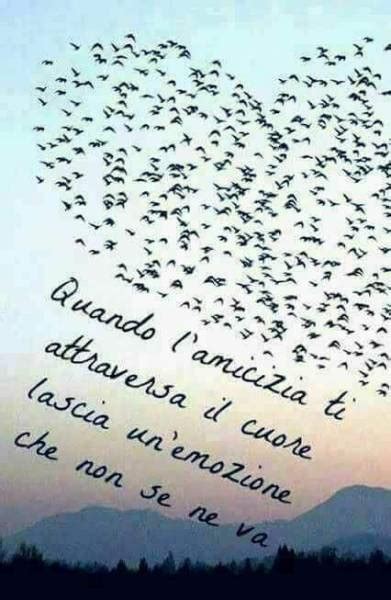 Quando l'amicizia ti
attraversa il cuore
lascia un'emozione
che non se ne va